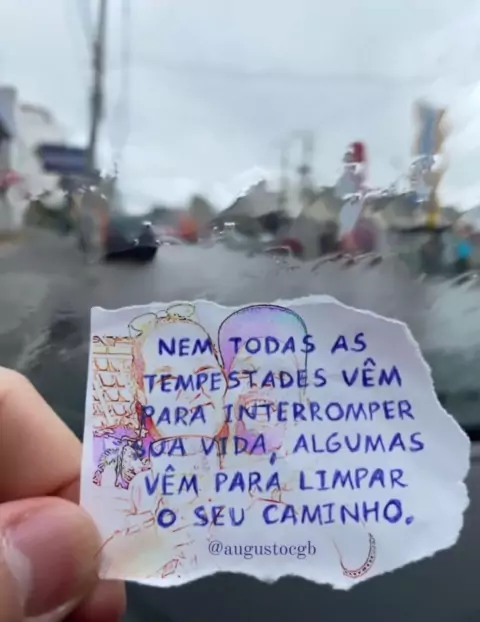 NEM TODAS AS
TEMPESTADES VÊM
PARA INTERROMPER
SUA VIDA, ALGUMAS
VÊM PARA LIMPAR
O SEU CAMINHO.
@augustocgb